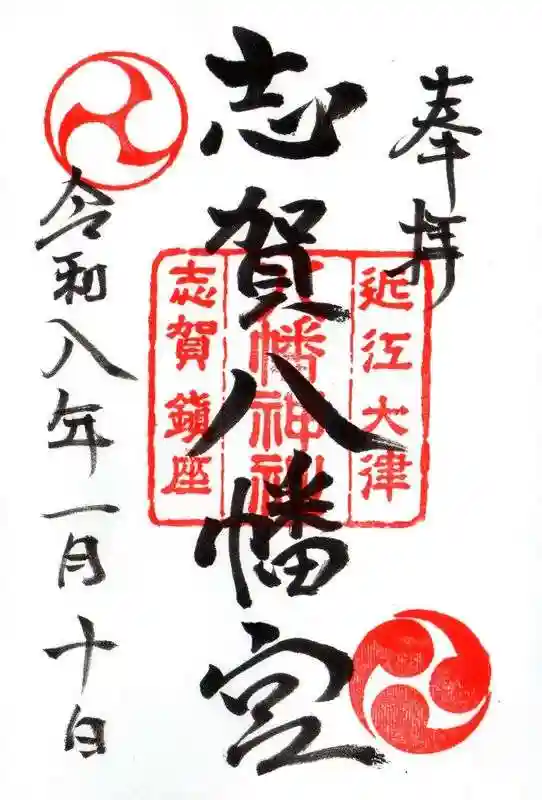 奉拝
近江大津
八幡神社
志賀鎮座
志賀八幡宮
令和八年一月十日